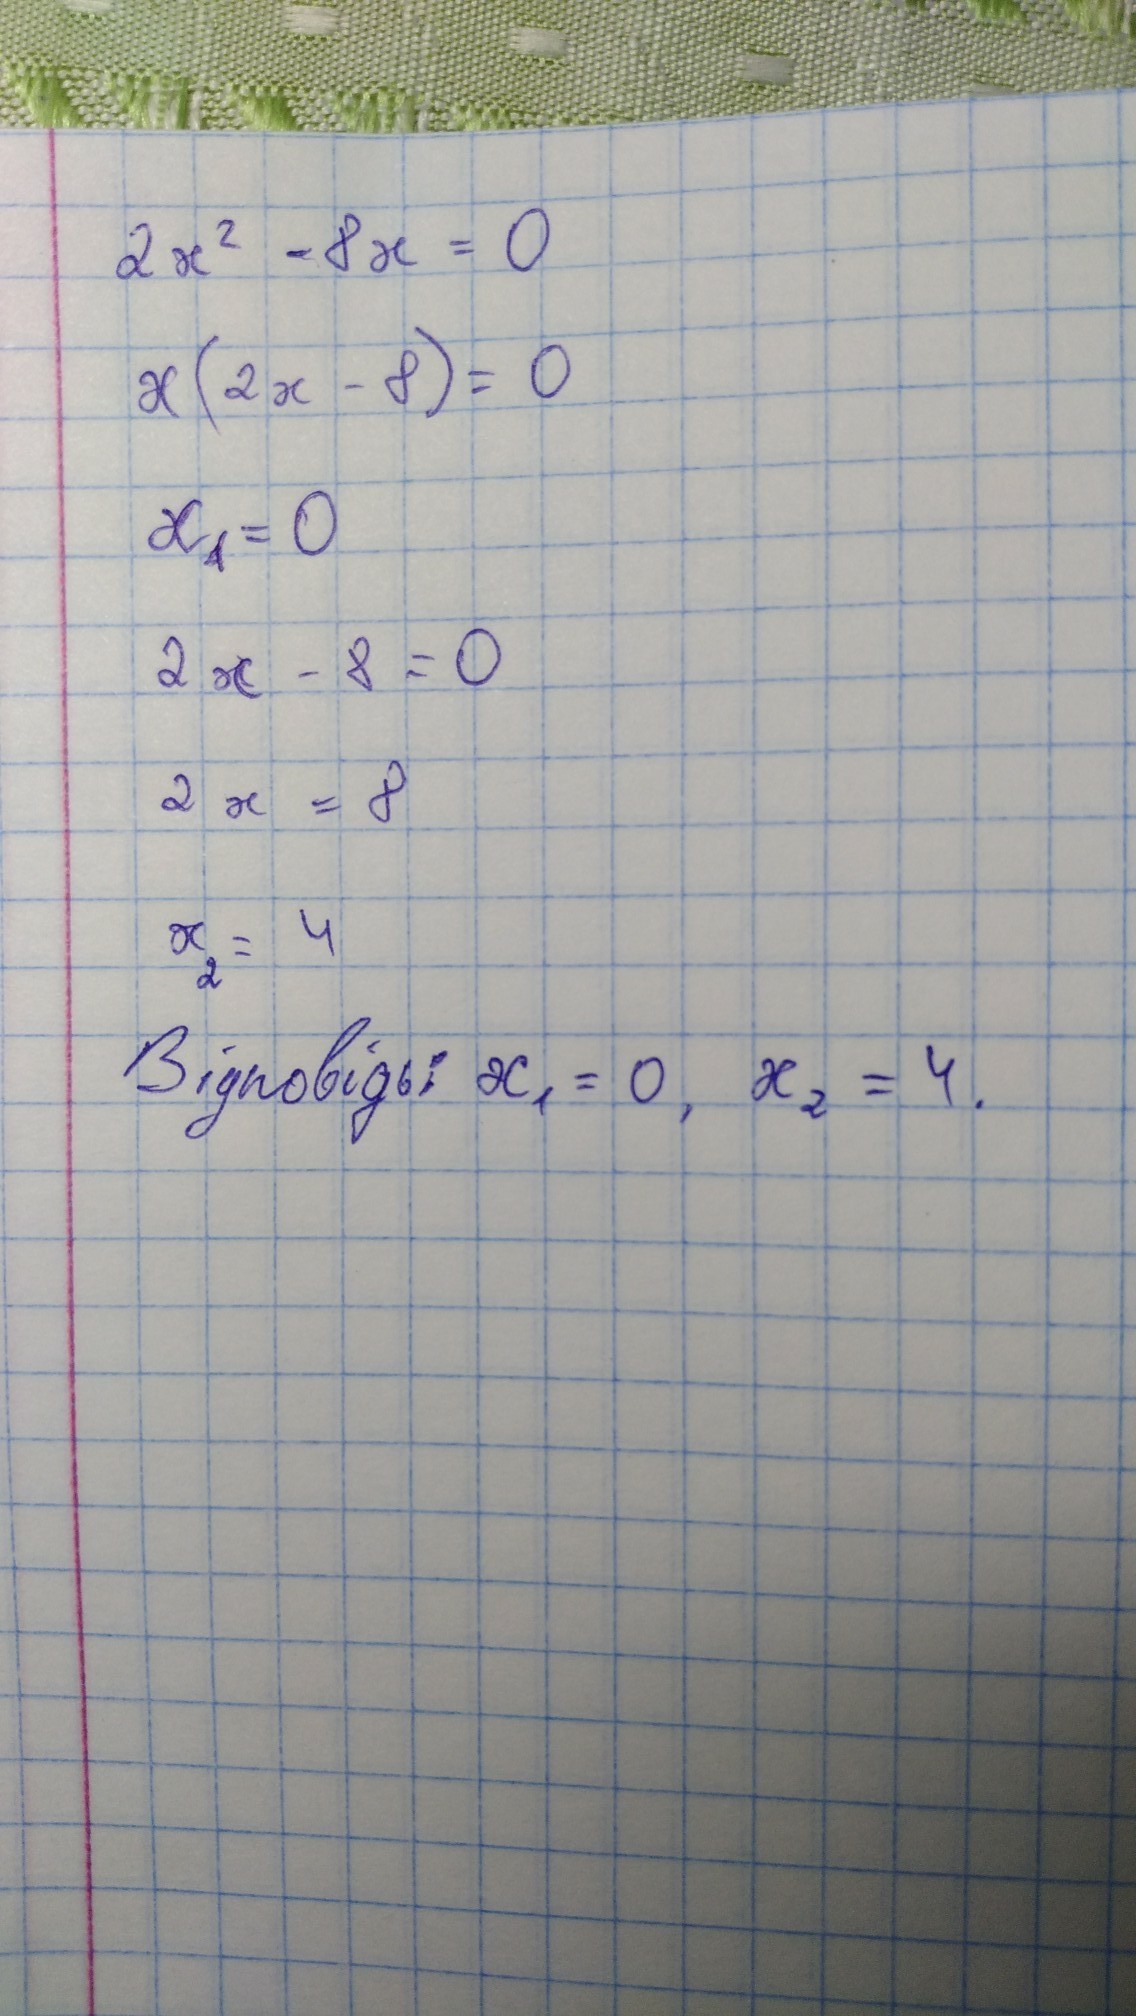 2x² - 8x = 0
x(2x - 8) = 0
x₁ = 0
2x - 8 = 0
2x = 8
x₂ = 4
Відповідь: x₁ = 0, x₂ = 4.